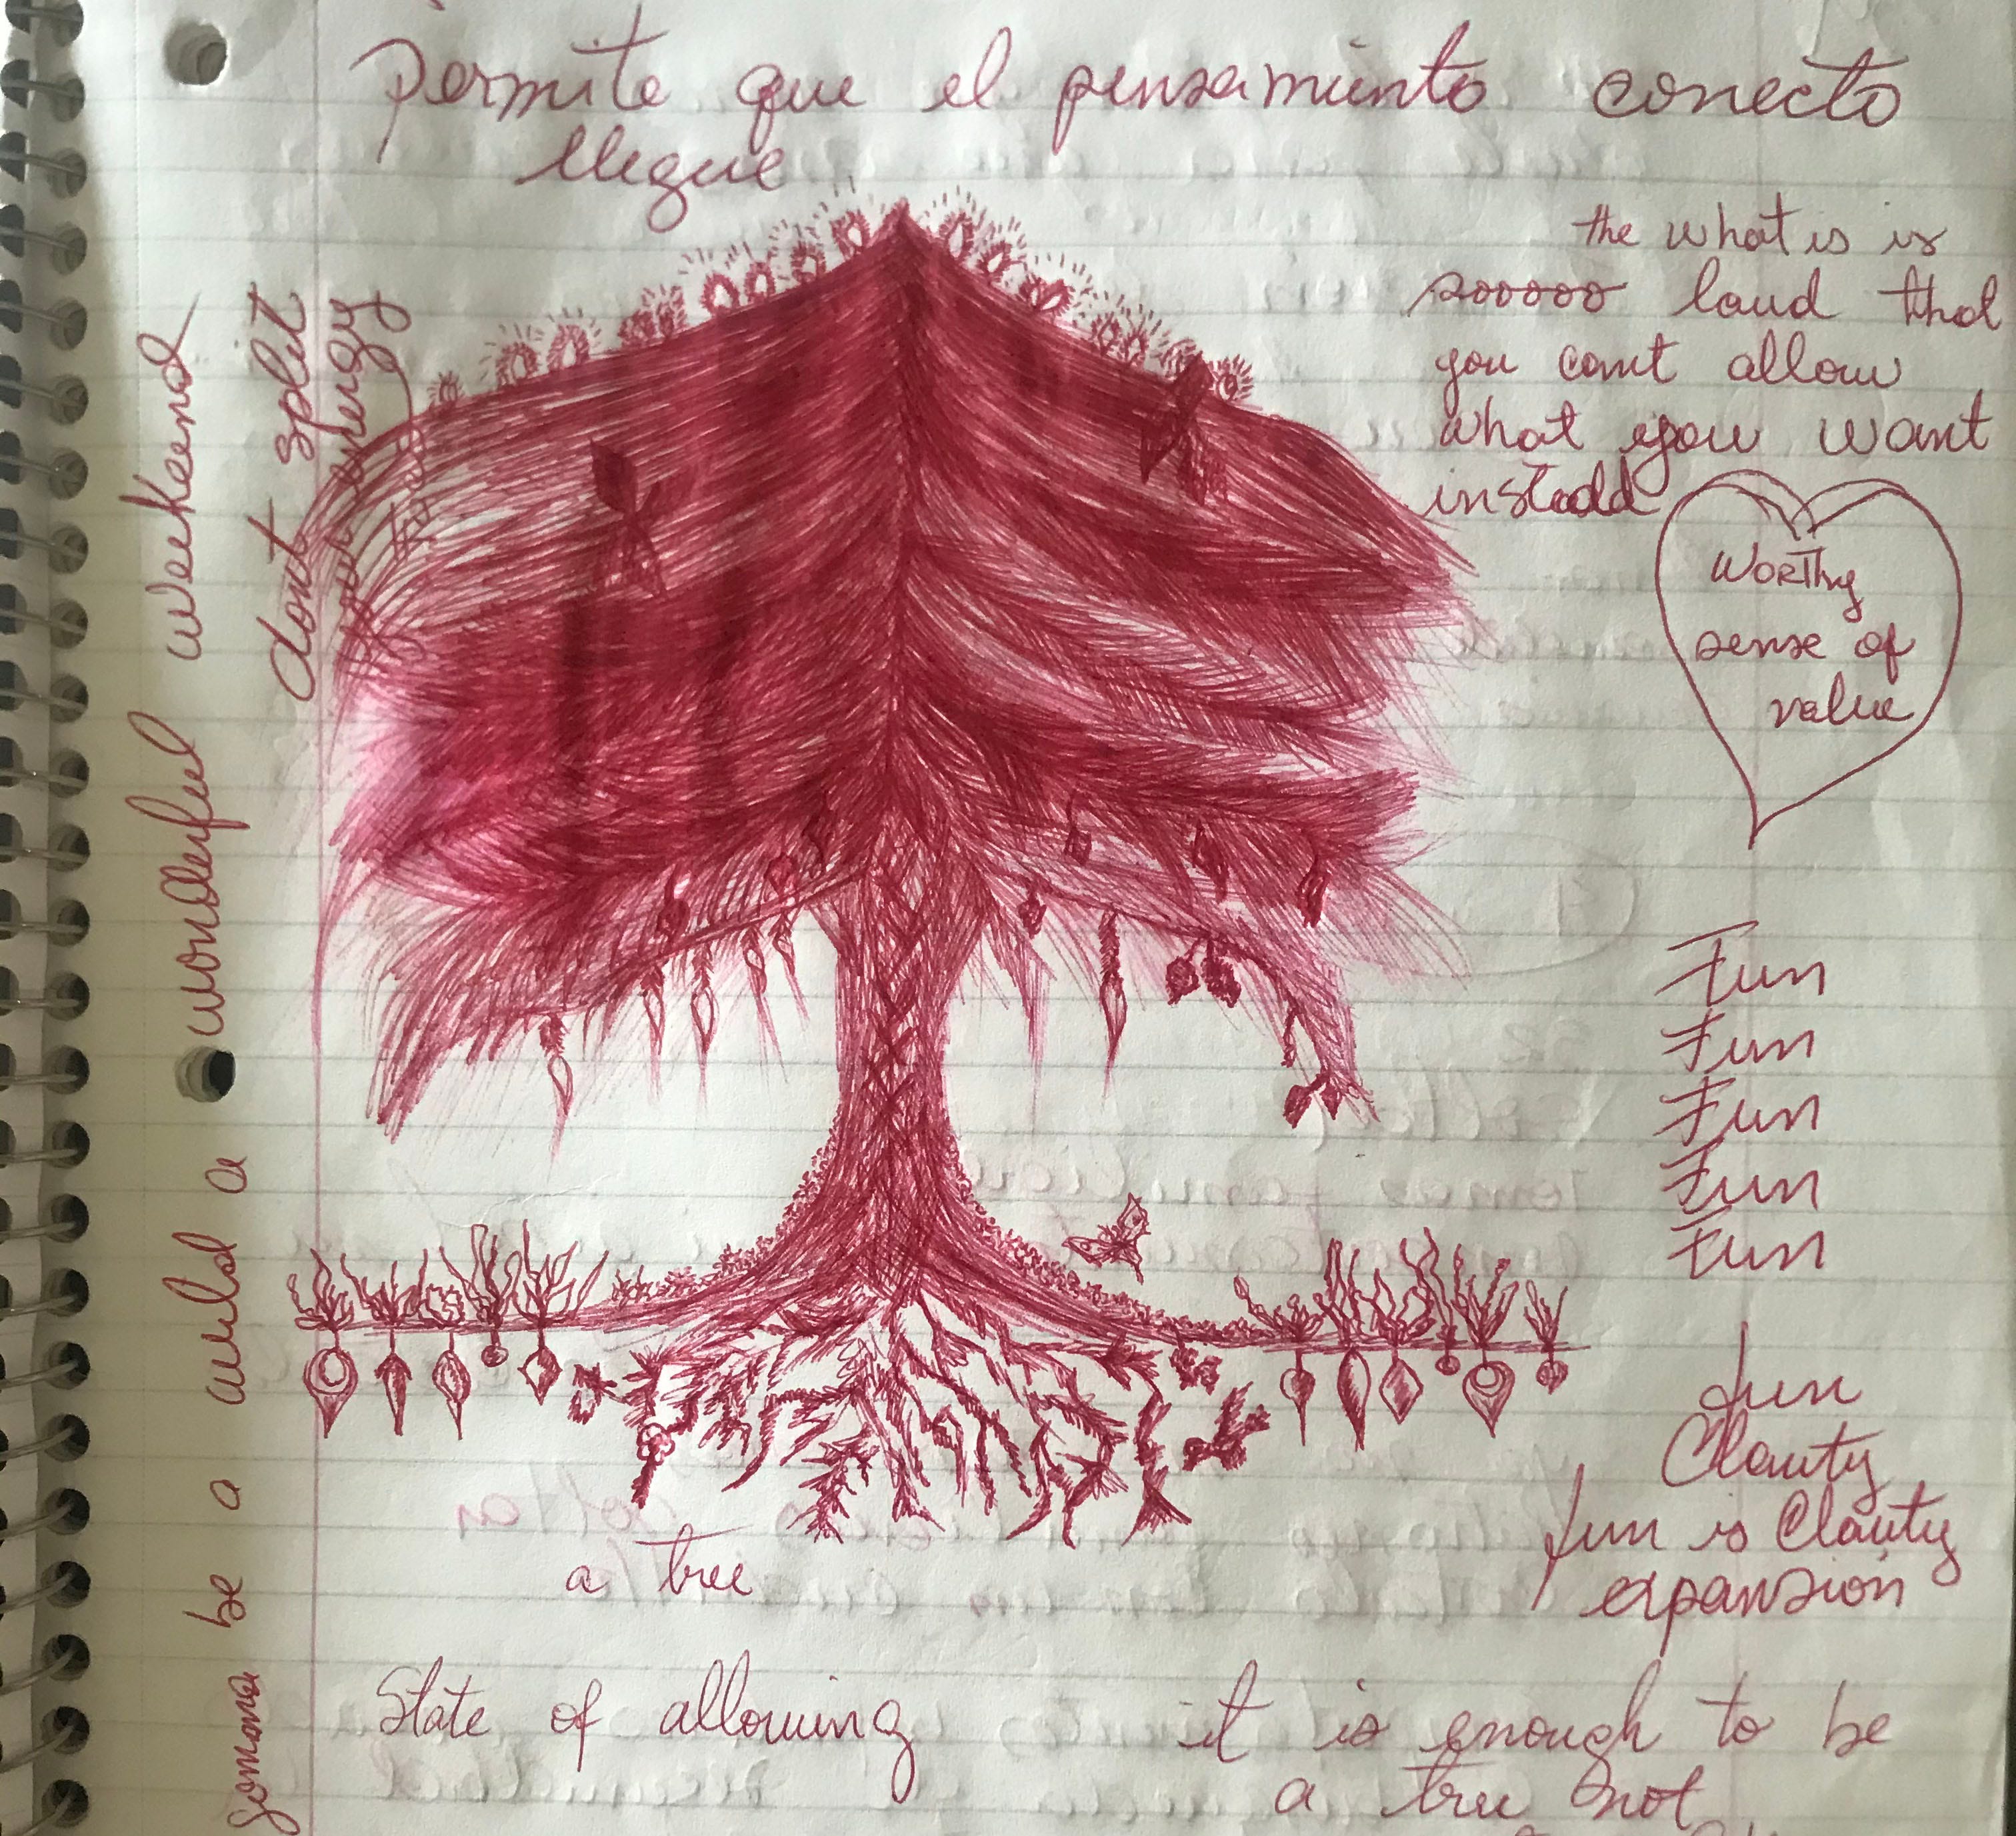 Permite que el pensamiento conecto
llegue
the what is is
sooooo loud that
you cant allow
what you want
instadd
Worthy
sense of
value
dont split
your energy
weekeend
wonderful
a
wuld
a
be
gonona
Fun
Fun
Fun
Fun
Fun
fun
Clarity
fun is Clarity
expansion
a tree
State of allowing
it is enough to be
a tree not